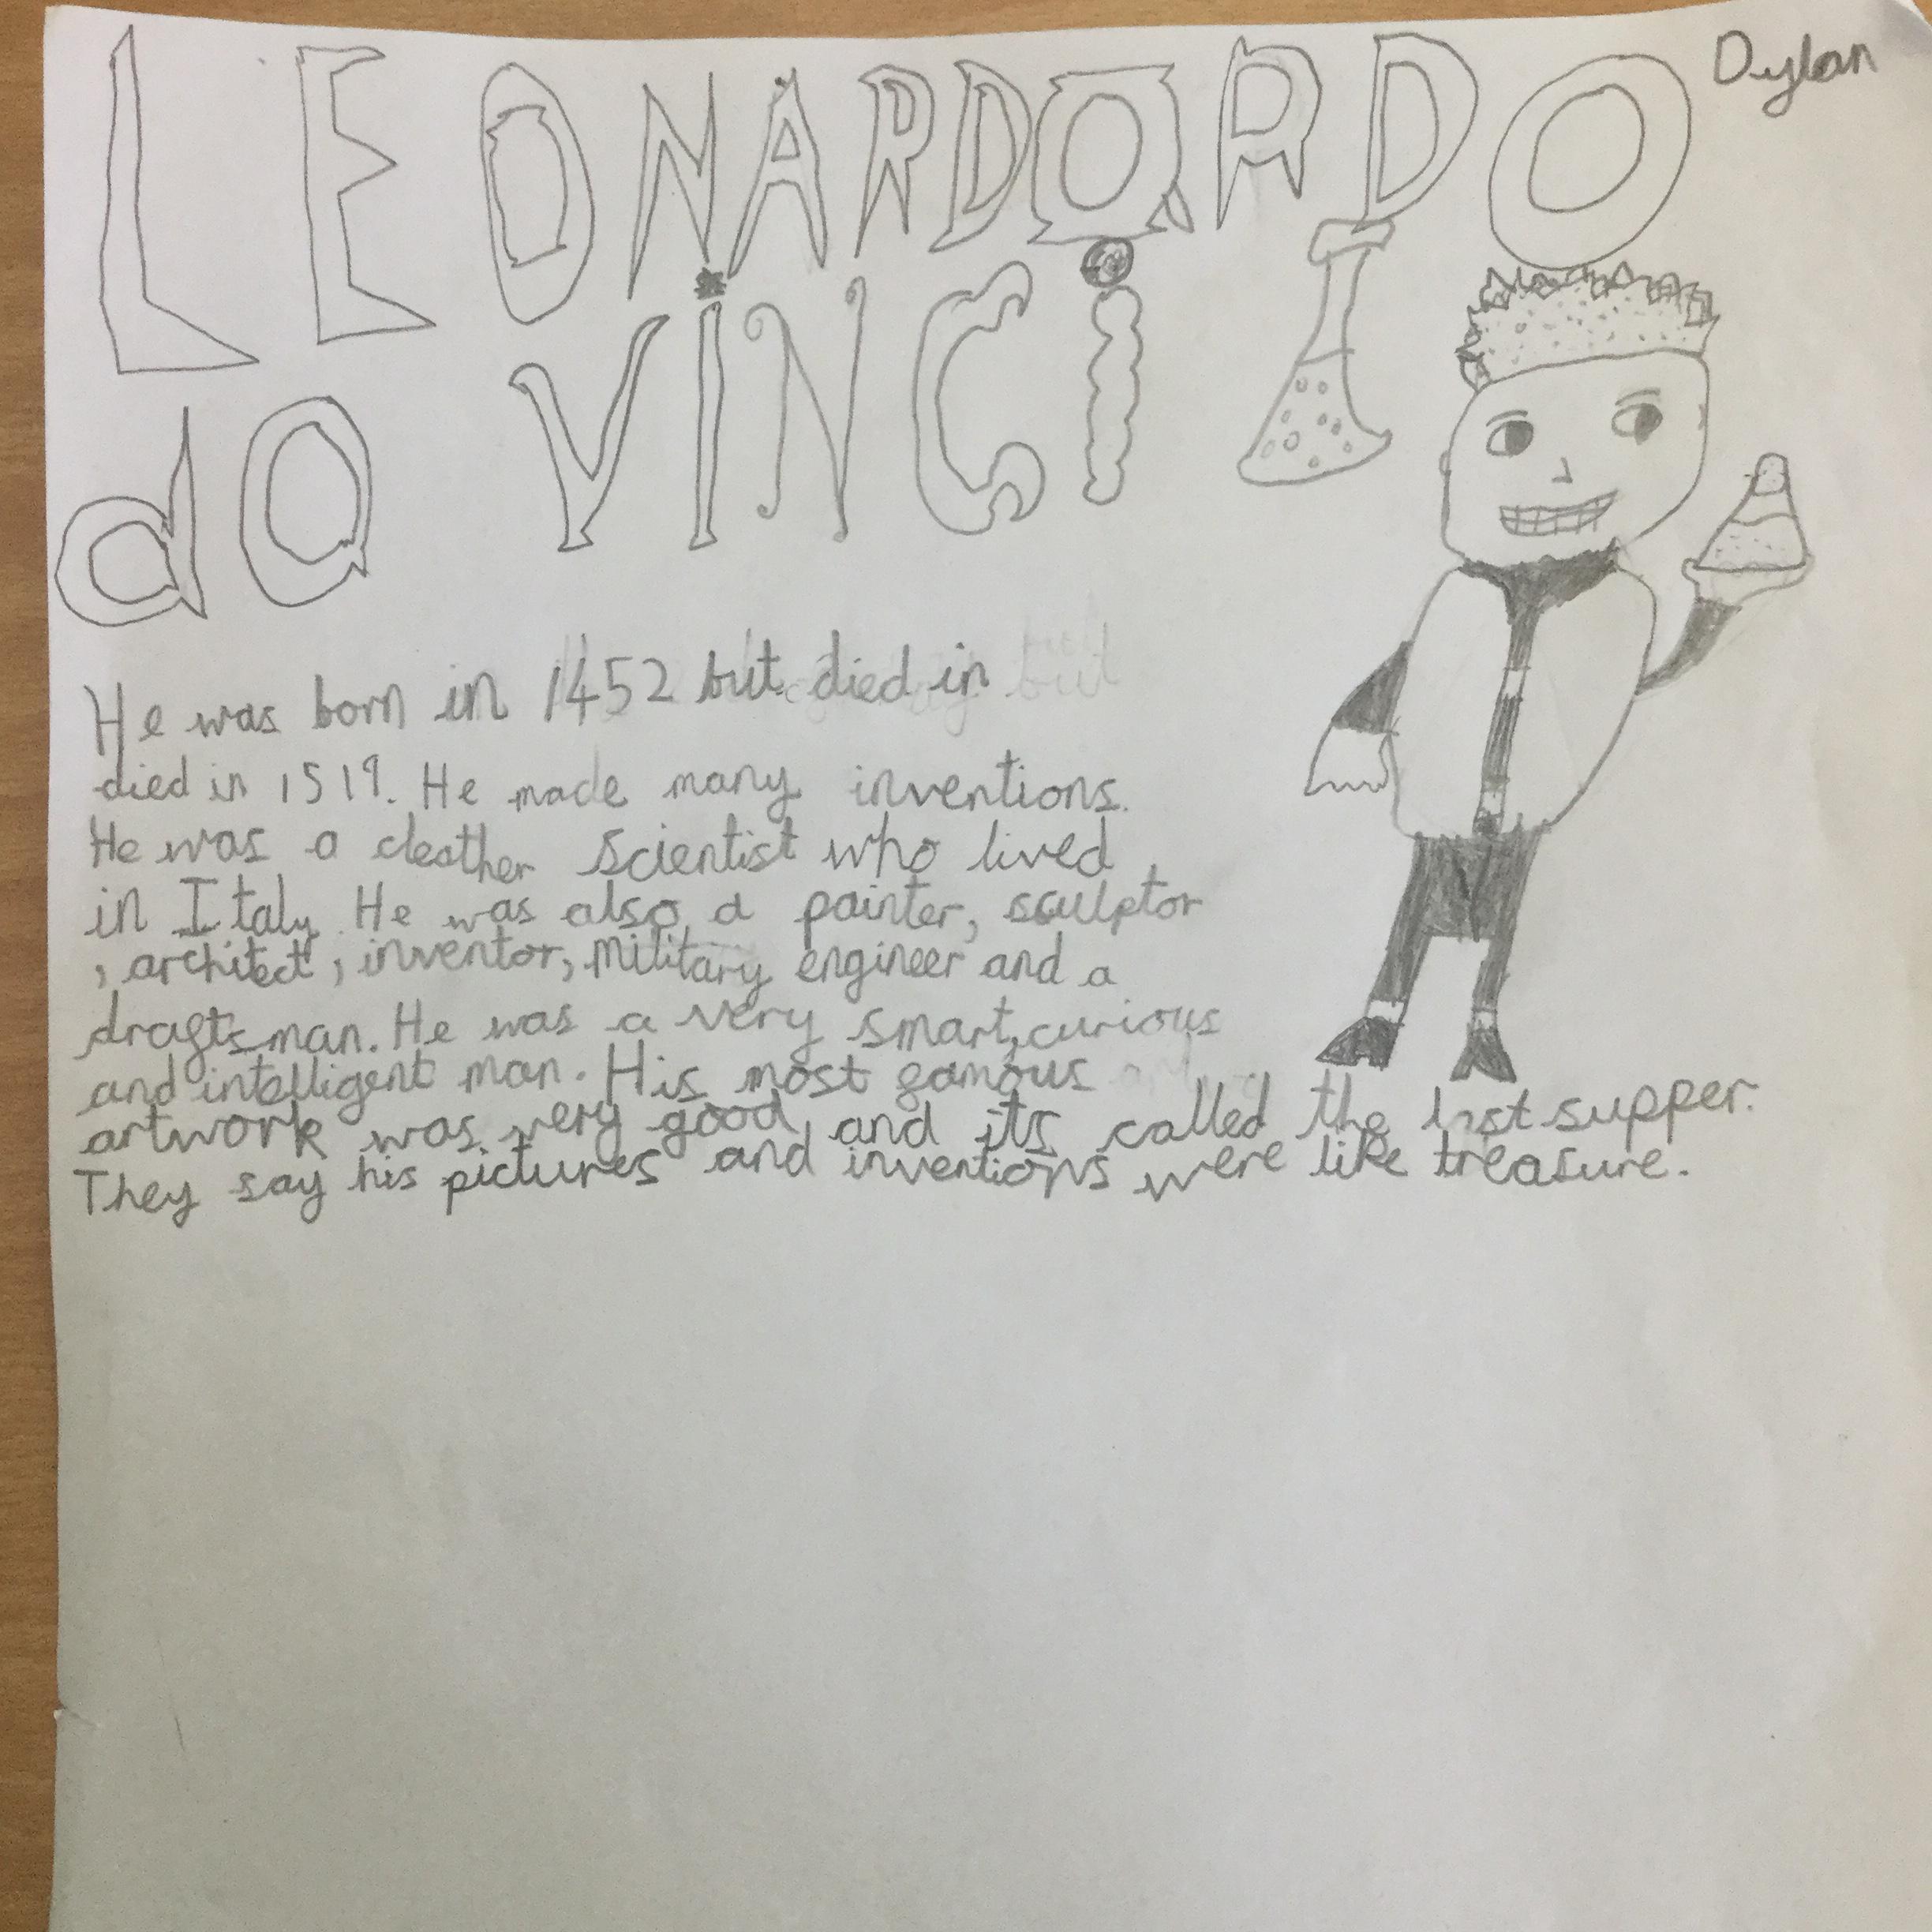 Dylan
LEONARDOARDO
da VINCi
He was born in 1452 but died in but
died in 1519. He made many inventions.
He was a cleather scientist who lived
in Italy. He was also a painter, sculptor
, architect, inventor, military engineer and a
draftsman. He was a very smart, curious
and intelligent man. His most famous
artwork was very good and its called the last supper.
They say his pictures and inventions were like treasure.